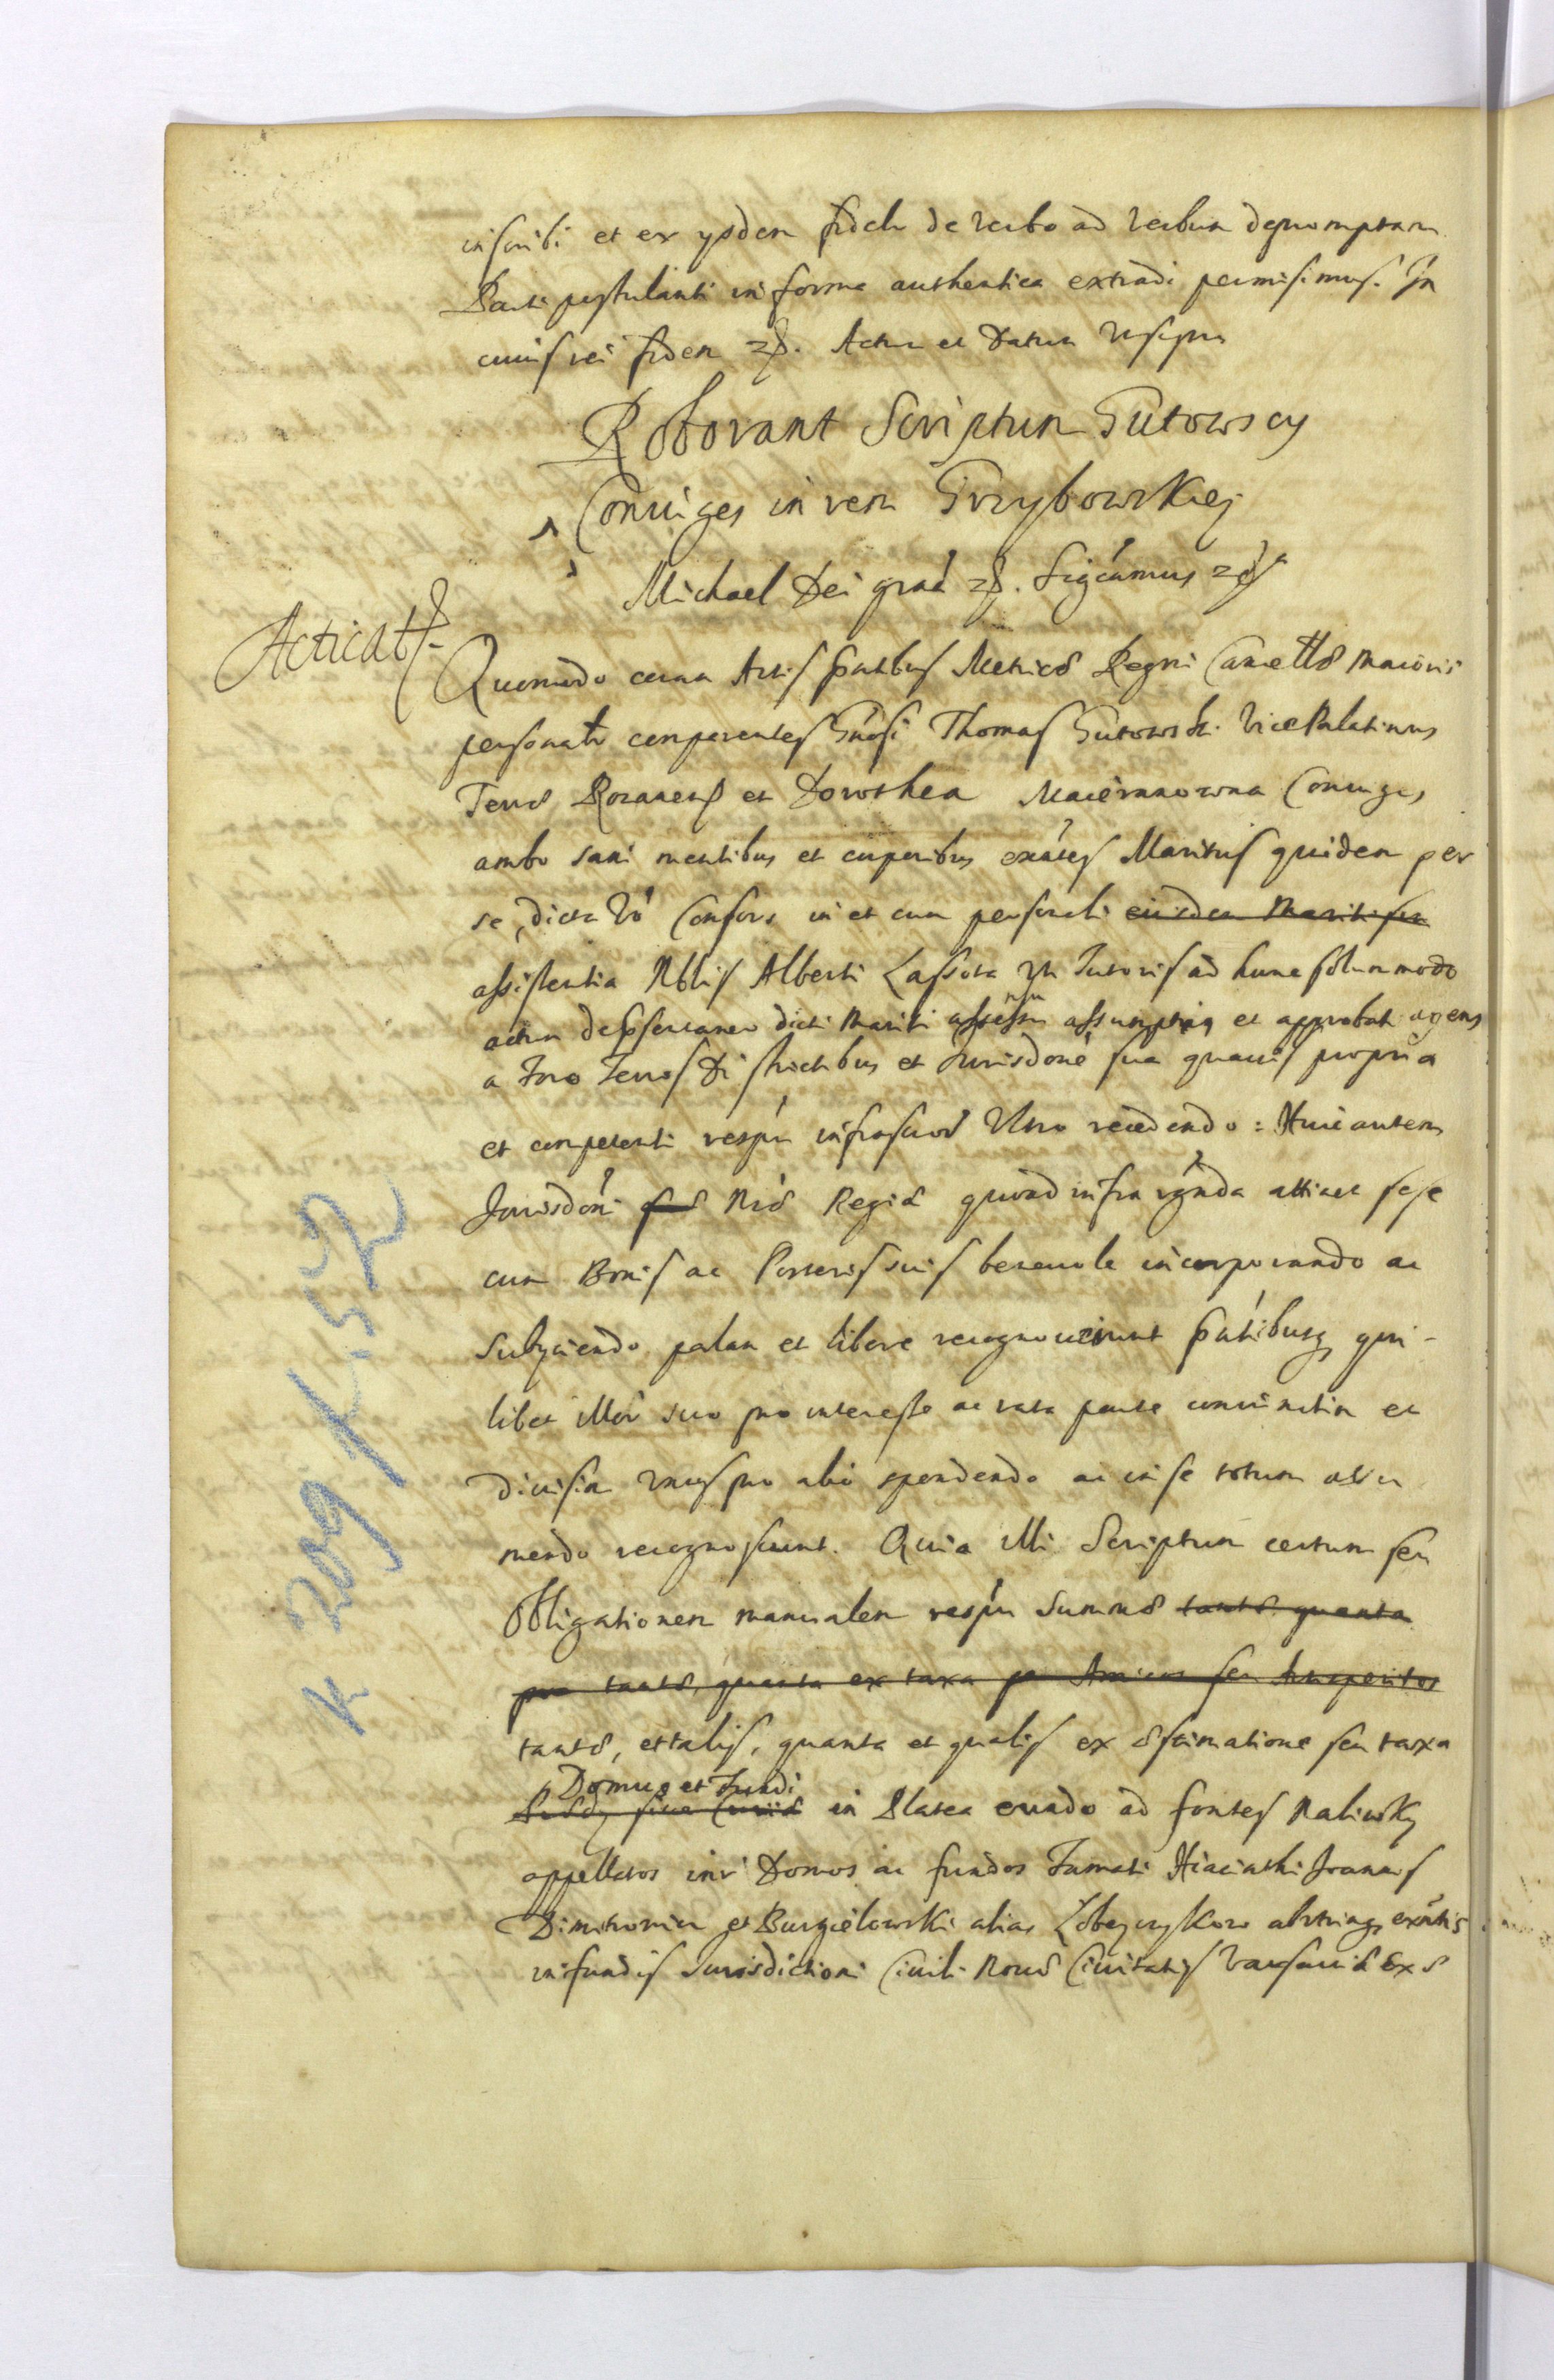 inscribi et ex ysdem fideli de verbo ad verbum depromptam
Parti postulanti in forma authentica extradi permisimus. In
cuius rei fidem Actum et Datum ut supra
Roborant Scriptum Gutowscy
Coniuges in rem Grzybowskiej
Michael Dei gra͂ Sigcamus
Acticat
Quomodo coram Actis pntibus Metrices Regni Cancell. Maioris
personaliter comparentes Gnosi Thomas Gutowski Vice Palatinus
Terræ Rozanens et Dorothea Coniuges
ambo sani mentibus et corporibus exntes Maritus quidem per
se, dicta Vo Consors in et cum personali eiusdem Mariti sui
assistentia Nblis Alberti Lassota uti Tutoris ad hunc solummodo
actum de dicti Mariti assensu assumptiq et approbati agens
a Foro Terris Districtibus et Jurisdone sua quavis propria
et competenti respu infrascr Vltro recedendo: Huic autem
Jurisdoni Nræ Regiæ quoad infra rgnda attinet sese
cum Bonis ac Posteris suis benevole incorporando ac
Subijciendo palam et libere recognoverunt pntibusq qui-
libet illor suo pro interesse ac rata parte coniunctim et
divisim unus pro alio spondendo ac in se totum assu
mendo recognoscunt. Quia illi Scriptum certum seu
Obligationem manualem respu Summæ tantæ quanta
pro tantæ, quanta ex taxa per Amicos seu Artisperitos
tantæ, et talis, quanta et qualis ex æstimatione seu taxa
Domus et Fundi
in Platea eundo ad fontes Naliwky
appellatos intr Domos ac fundos Famati Hiacinthi Joannis
et alias exntis
in fundis Jurisdictioni Civili Novæ Civitatis Varsaviæ
K 209 k. 52